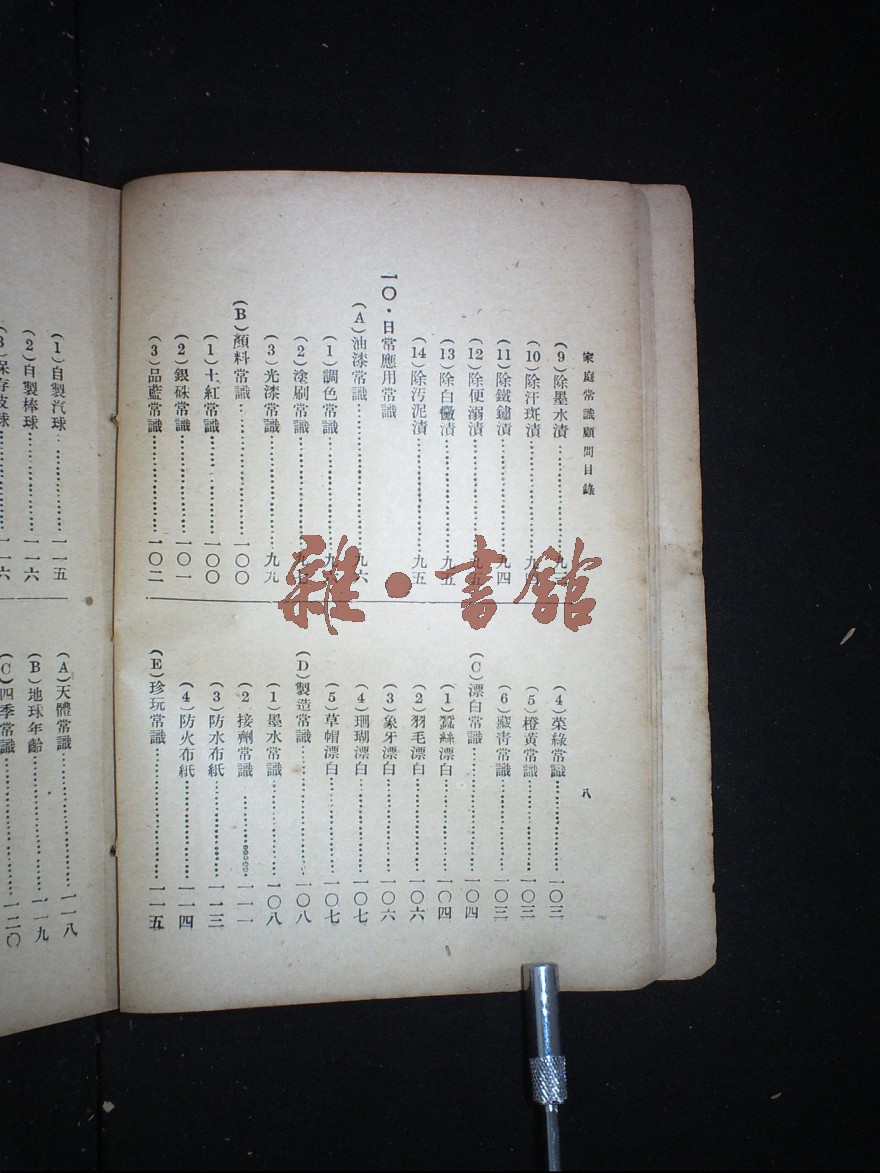 家庭常識顧問目錄
(9)除墨水漬
(10)除汗斑漬
(11)除鐵鏽漬 九四
(12)除便溺漬 九五
(13)除白黴漬 九五
(14)除汚泥漬 九五
一〇·日常應用常識
(A)油漆常識 九六
(1)調色常識
(2)塗刷常識 九七
(3)光漆常識 九九
(B)顏料常識 一〇〇
(1)土紅常識 一〇〇
(2)銀硃常識 一〇一
(3)品藍常識 一〇二
八
(4)菜綠常識 一〇三
(5)橙黃常識 一〇三
(6)藏靑常識 一〇三
(C)漂白常識 一〇四
(1)蠶絲漂白 一〇四
(2)羽毛漂白 一〇六
(3)象牙漂白 一〇六
(4)珊瑚漂白 一〇七
(5)草帽漂白 一〇七
(D)製造常識 一〇八
(1)墨水常識 一〇八
(2 接劑常識 一一一
(3)防水布紙 一一三
(4)防火布紙 一一四
(E)珍玩常識 一一五
(1)自製汽球 一一五
(2)自製棒球 一一六
(3)保存皮球 一一六
(A)天體常識 一一八
(B)地球年齡 一一九
(C)四季常識 一二〇
雜·書館